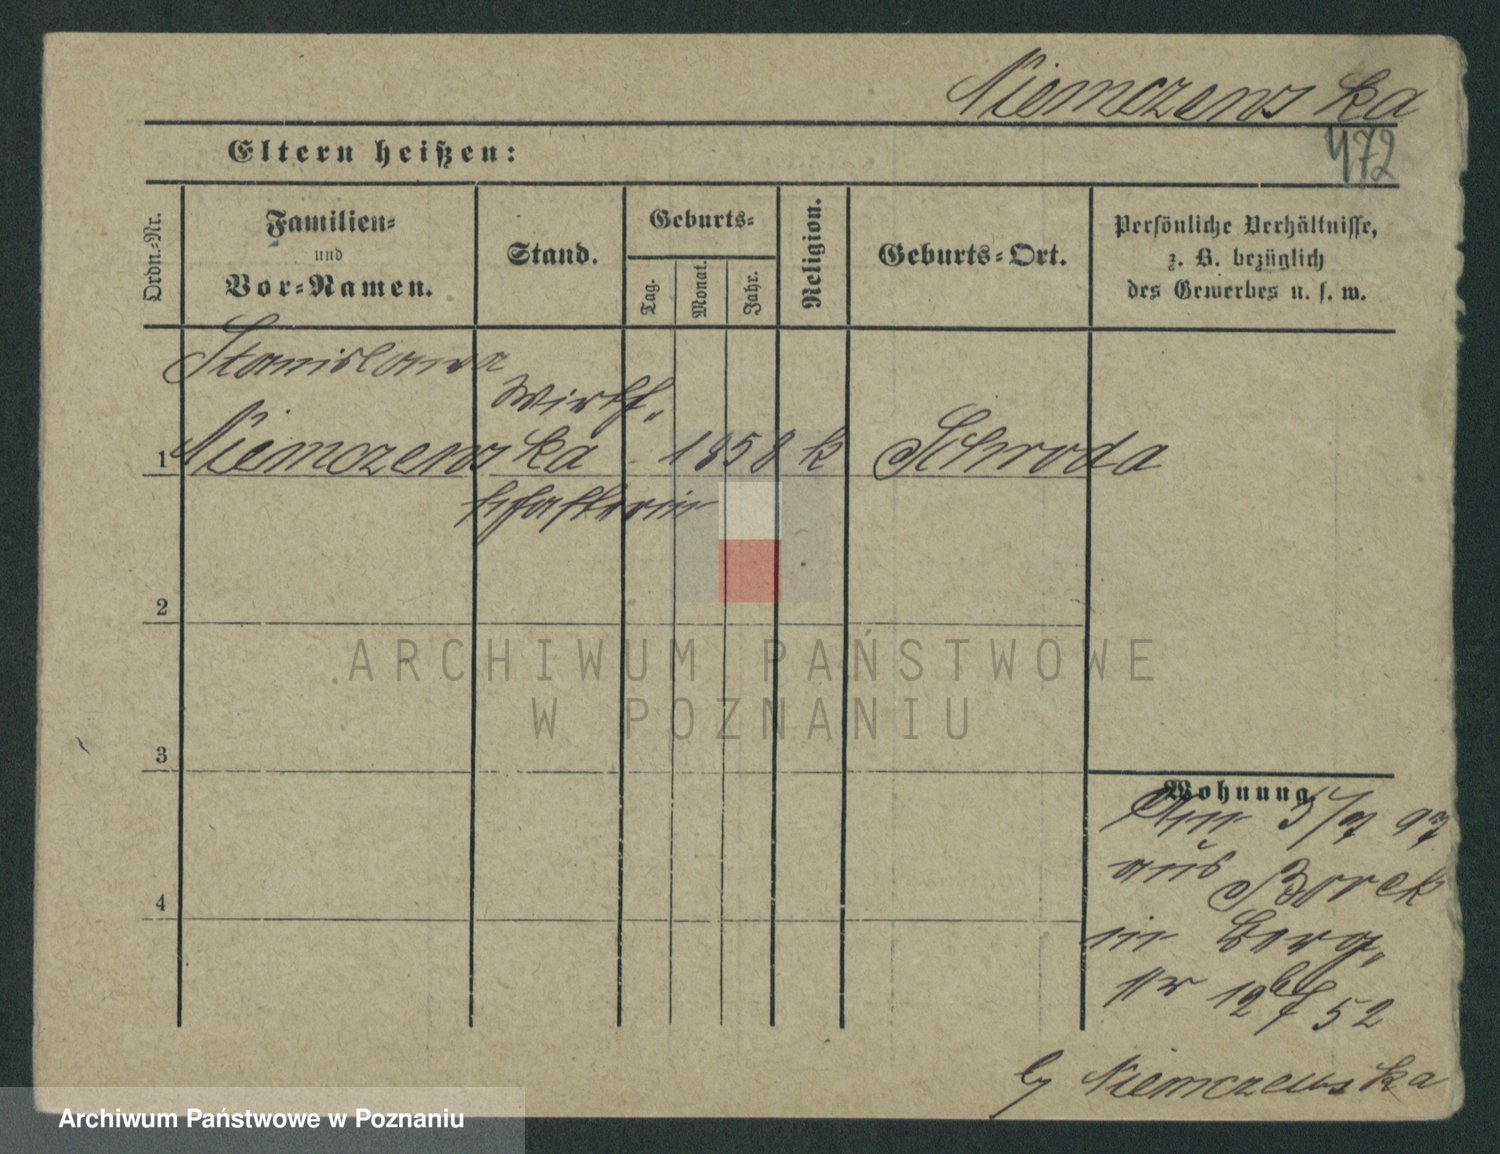 Niemczewska
472
Eltern heißen:
Ordn.-Nr.
Familien-
und
Vor-Namen.
Stand.
Geburts-
Tag.
Monat.
Jahr.
Religion.
Geburts-Ort.
Persönliche Verhältnisse,
z. B. bezüglich
des Gewerbes u. s. w.
Stanislawa
Wirth-
1 Niemczewska 1858 k Schroda
schafterin
2
ARCHIWUM PAŃSTWOWE
W POZNANIU
3
Wohnung
5/7 97
aus Borek
in Berg-
str 12 52
4
by Niemczewska
Archiwum Państwowe w Poznaniu